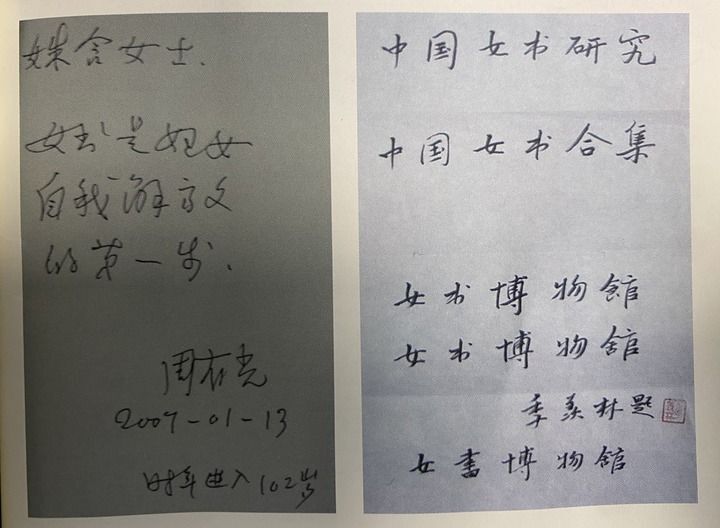 姝含女士.
女书是妇女
自我解放
的第一步.
周有光
2007-01-13
时年进入102岁
中国女书研究
中国女书合集
女书博物館
女书博物館
季羡林題
女書博物館